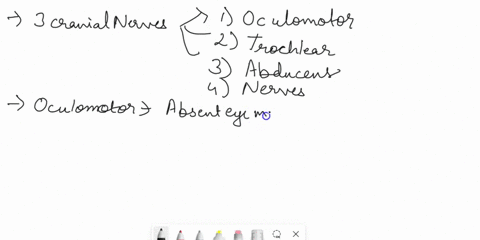 → 3 cranial Nerves
1) Oculomotor
2) Trochlear
3) Abducens
4) Nerves
→ Oculomotor → Absent eye m